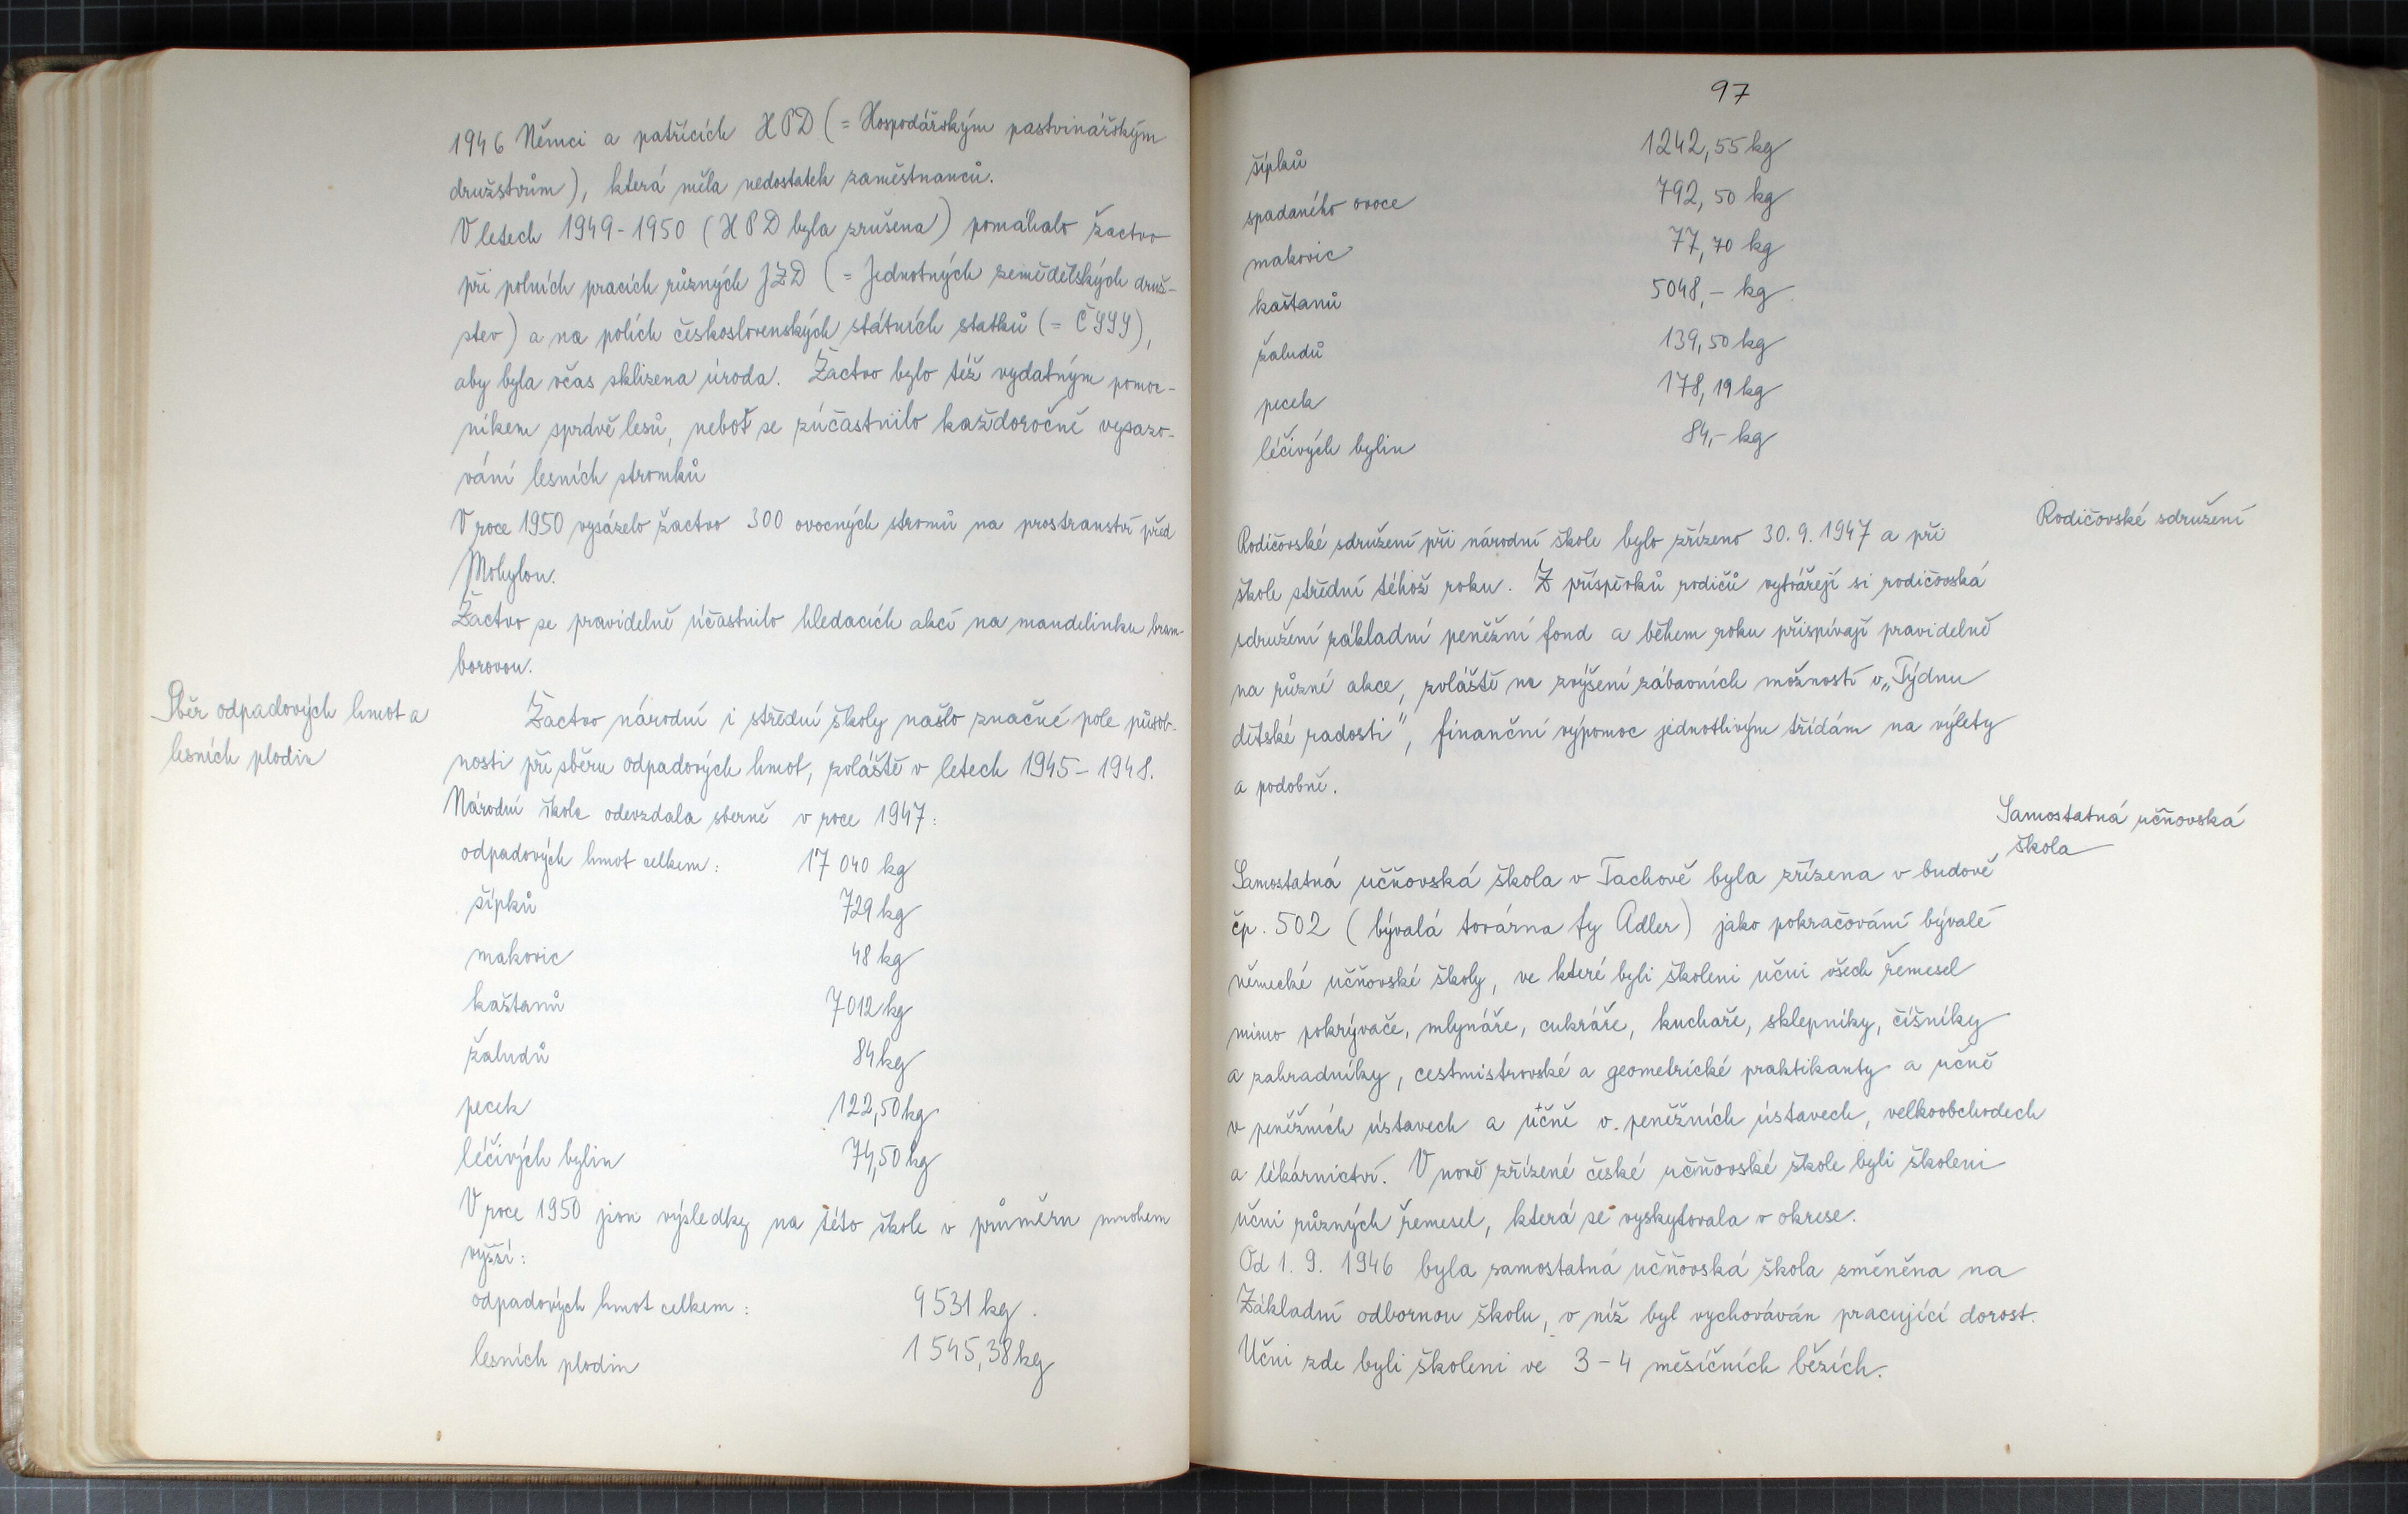 1946 Němci a patřících HPD (= Hospodářským pastvinářským
družstvům), která měla nedostatek zaměstnanců.
V letech 1949-1950 (HPD byla zrušena) pomáhalo žactvo
při polních pracích různých JZD (= Jednotných zemědělských druž-
stev) a na polích československých státních statků (= ČSSS),
aby byla včas sklizena úroda. Žactvo bylo též vydatným pomoc-
níkem správě lesů, neboť se zúčastnilo každoročně vysazo-
vání lesních stromků
V roce 1950 vysázelo žactvo 300 ovocných stromů na prostranství před
Mohylou.
Žactvo se pravidelně účastnilo hledacích akcí na mandelinku bram-
borovou.
Sběr odpadových hmot a
lesních plodin
Žactvo národní i střední školy našlo značné pole působ-
nosti při sběru odpadových hmot, zvláště v letech 1945-1948.
Národní škola odevzdala sběrně v roce 1947:
odpadových hmot celkem: 17 040 kg
šípků 729 kg
makovic 48 kg
kaštanů 7012 kg
žaludů 84 kg
pecek 122,50 kg
léčivých bylin 74,50 kg
V roce 1950 jsou výsledky na této škole v průměru mnohem
vyšší:
odpadových hmot celkem: 9531 kg.
lesních plodin 1545,38 kg
97
šípků 1242,55 kg
spadaného ovoce 792,50 kg
makovic 77,70 kg
kaštanů 5048,- kg
žaludů 139,50 kg
pecek 178,19 kg
léčivých bylin 84,- kg
Rodičovské sdružení
Rodičovské sdružení při národní škole bylo zřízeno 30.9.1947 a při
škole střední téhož roku. Z příspěvků rodičů vytvářejí si rodičovská
sdružení základní peněžní fond a během roku přispívají pravidelně
na různé akce, zvláště na zvýšení zábavních možností v „Týdnu
dětské radosti", finanční výpomoc jednotlivým třídám na výlety
a podobně.
Samostatná učňovská
škola
Samostatná učňovská škola v Tachově byla zřízena v budově
čp. 502 (bývalá továrna fy Adler) jako pokračování bývalé
německé učňovské školy, ve které byli školeni učni všech řemesel
mimo pokrývače, mlynáře, cukráře, kuchaře, sklepníky, číšníky
a zahradníky, cestmistrovské a geometrické praktikanty a učně
v peněžních ústavech a učně v. peněžních ústavech, velkoobchodech
a lékárnictví. V nově zřízené české učňovské škole byli školeni
učni různých řemesel, která se vyskytovala v okrese.
Od 1. 9. 1946 byla samostatná učňovská škola změněna na
Základní odbornou školu, v níž byl vychováván pracující dorost.
Učni zde byli školeni ve 3-4 měsíčních bězích.